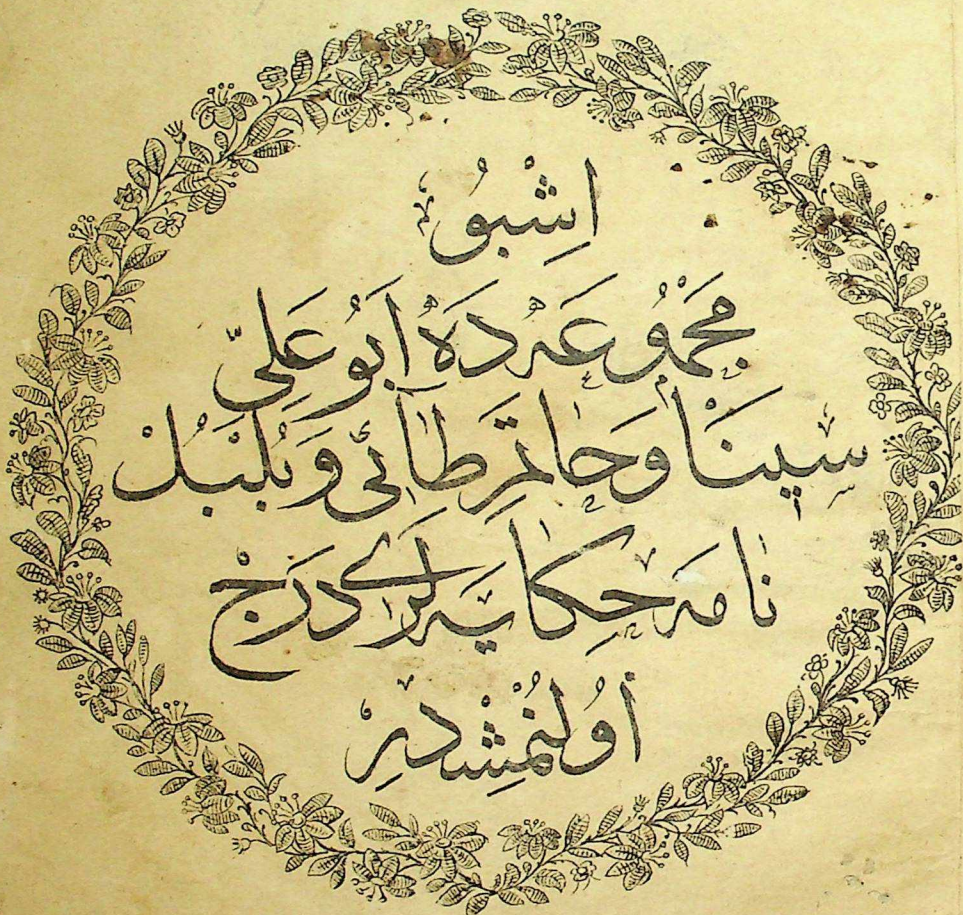 اِشْبُو
مَجْمُوعَه دَهْ اَبُو عَلِيّ
سِينَا وَحَاتِمِ طَآئِى وَبُلْبُلْ
نَامَه حِكَايَه لَرِى دَرَجْ
اُولُنْمِشْدِرْ